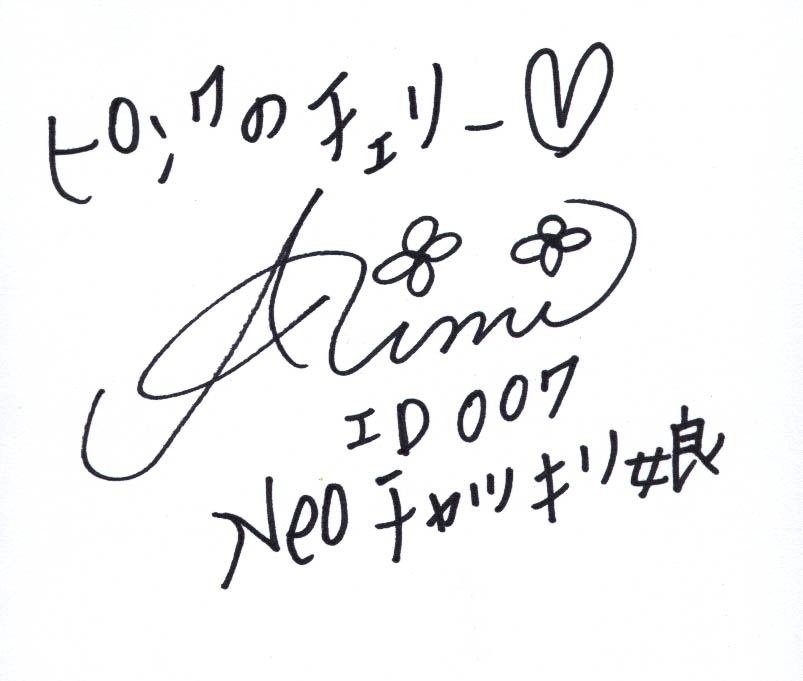 ピンクのチェリー♡
ID007
Neoチャッキリ娘